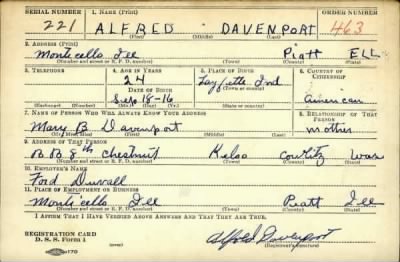 SERIAL NUMBER 1. NAME (Print) ORDER NUMBER
221 ALFRED DAVENPORT 463
(First) (Middle) (Last)
2. ADDRESS (Print)
Monticello Ill Piatt ELL
(Number and street or R. F. D. number) (Town) (County) (State)
3. TELEPHONE 4. AGE IN YEARS 5. PLACE OF BIRTH 6. COUNTRY OF CITIZENSHIP
24 Layfette Ind
DATE OF BIRTH (Town or county)
Sep 18-16 American
(Exchange) (Number) (Mo.) (Day) (Yr.) (State or country)
7. NAME OF PERSON WHO WILL ALWAYS KNOW YOUR ADDRESS 8. RELATIONSHIP OF THAT PERSON
Mary B Davenport mother
(Mr., Mrs., Miss) (First) (Middle) (Last)
9. ADDRESS OF THAT PERSON
8th Chestnut Kelso Cowlitz Was
(Number and street or R. F. D. number) (Town) (County) (State)
10. EMPLOYER'S NAME
Ford Duvall
11. PLACE OF EMPLOYMENT OR BUSINESS
Monticello Ill Piatt Ill
(Number and street or R. F. D. number) (Town) (County) (State)
I AFFIRM THAT I HAVE VERIFIED ABOVE ANSWERS AND THAT THEY ARE TRUE.
REGISTRATION CARD
D. S. S. Form 1 Alfred Davenport
(Registrant's signature)